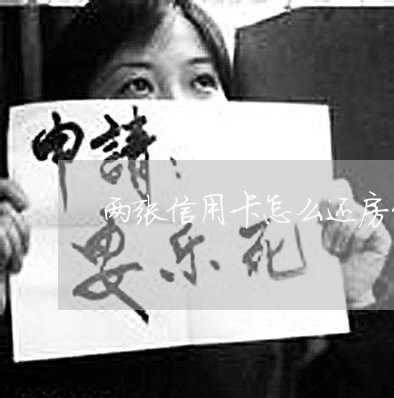 申請：
两张信用卡怎么还房
安乐死